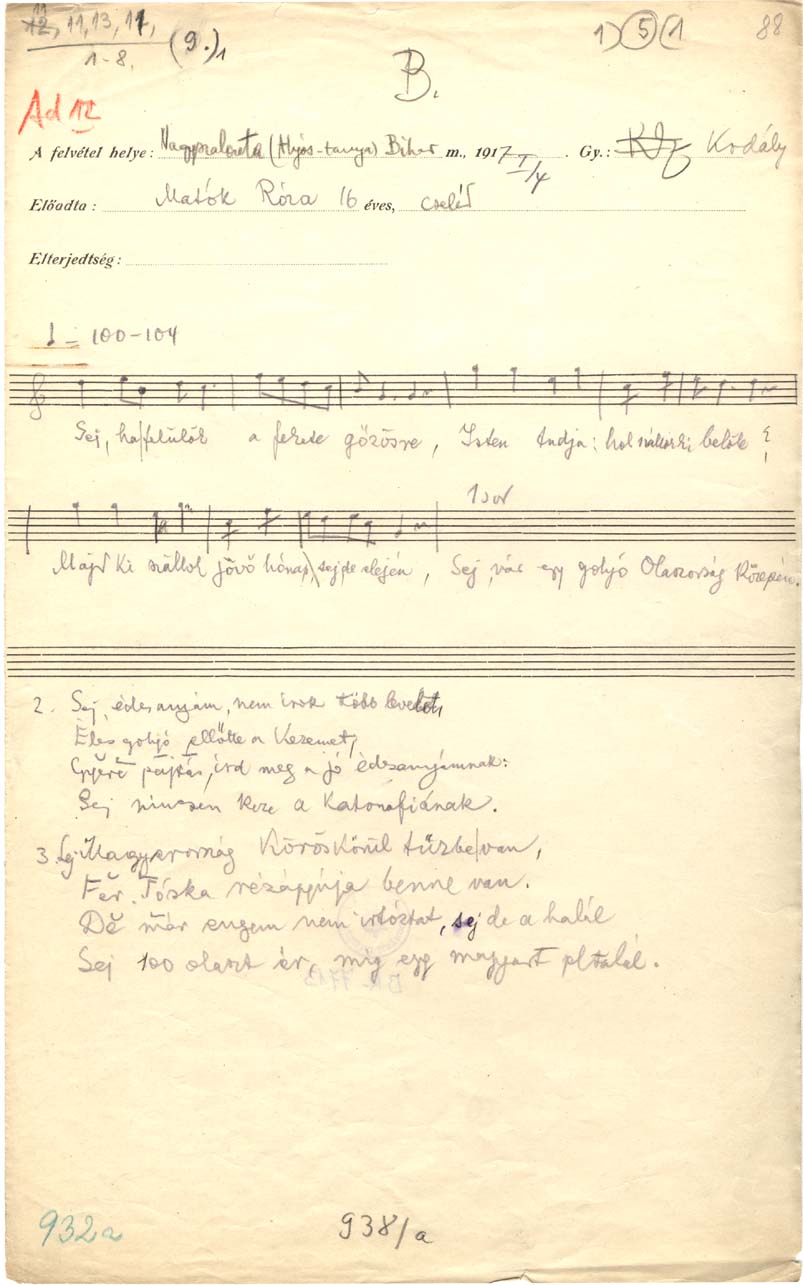 11
12, 11, 13, 11,
1-8. (9.)1
1) 5 (1
88
B.
Ad 12
A felvétel helye: Nagyszalonta (Alyós-tanya) Bihar m., 1917 I/4. Gy.: Kodály
Előadta: Matók Róza 16 éves, cseléd
Elterjedtség:
♩ = 100-104
Sej, ha felülök a fekete gőzösre, Isten tudja: hol szállok ki belőle
1 sor
Majd ki szállok jövő hónap, sej de elején, Sej vár egy golyó Olaszország közepén.
2. Sej, édesanyám, nem írok több levelet,
Éles golyó ellőtte a kezemet,
Gyere pajtás, írd meg a jó édesanyámnak:
Sej nincsen keze a katonafiának.
3. Sej Magyarország köröskörül tűzbe van,
Fer. Jóska rézágyúja benne van.
De már engem nem irtóztat, sej de a halál
Sej 100 olaszt ér, míg egy magyart eltalál.
932a
938/a